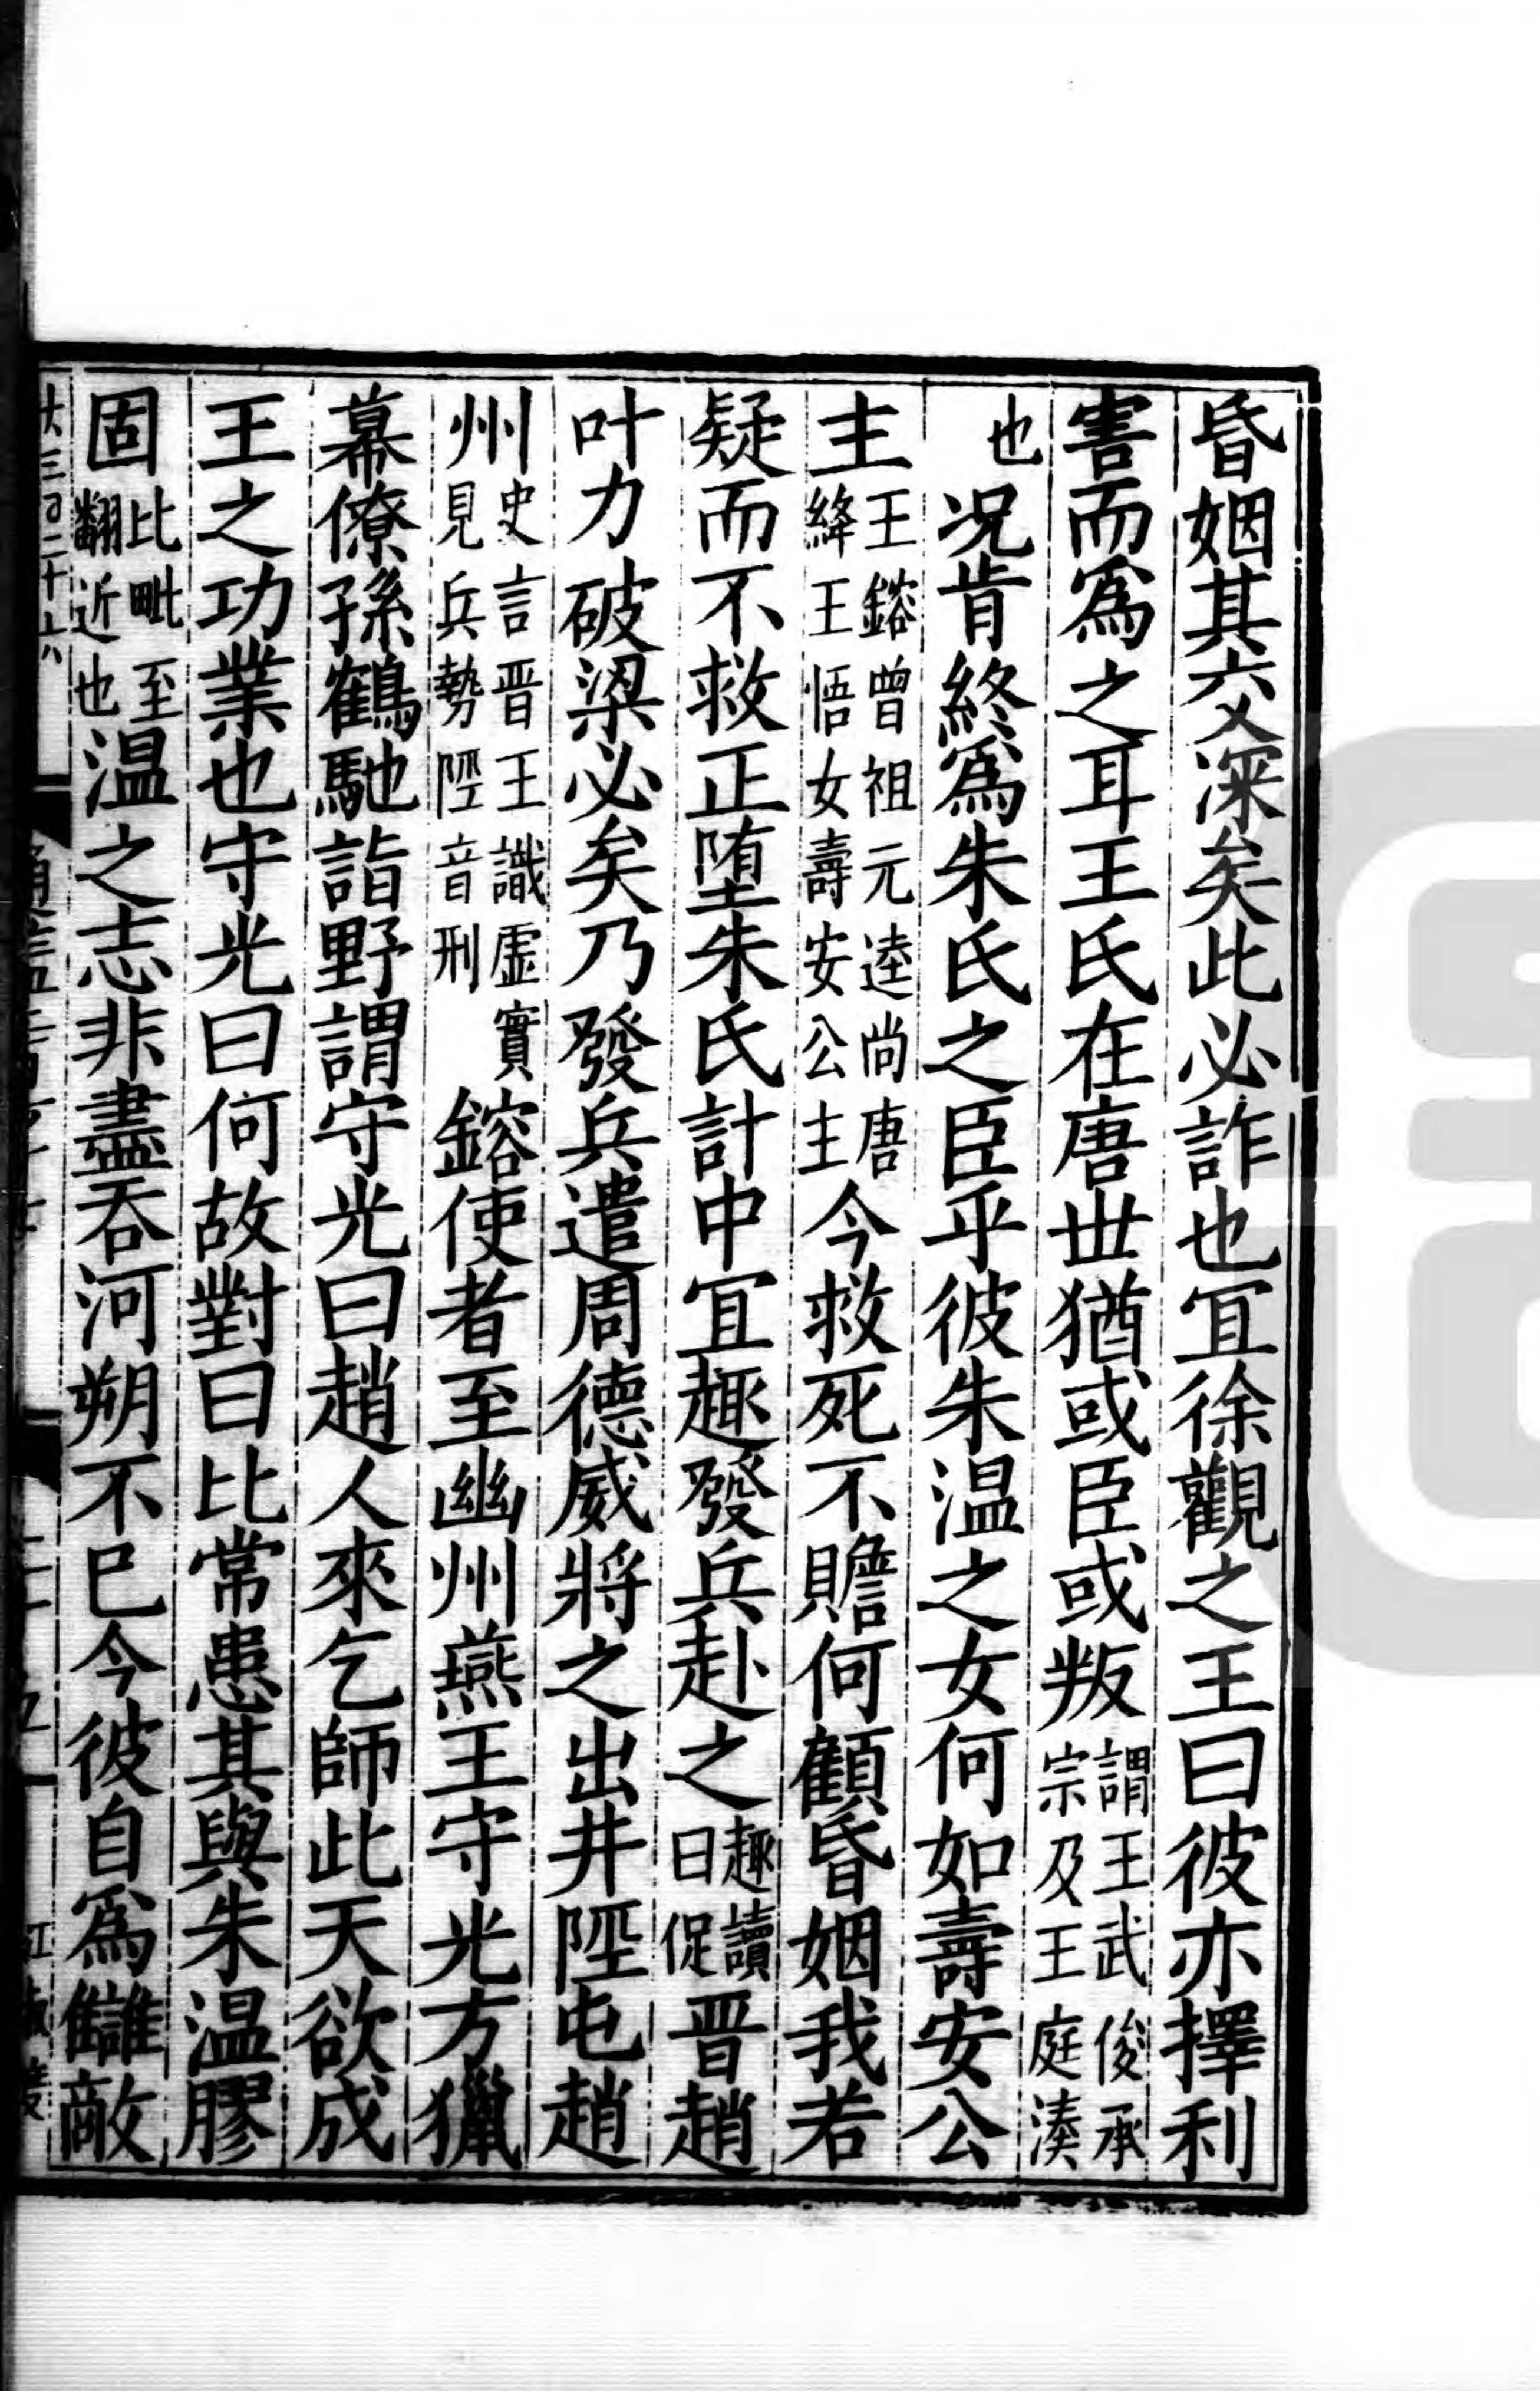 昏姻其交深矣此必詐也冝徐觀之王曰彼亦擇利
害而爲之耳王氏在唐世猶或臣或叛謂王武俊承宗及王庭湊
也况肯終爲朱氏之臣乎彼朱温之女何如壽安公
主王鎔曾祖元逵尚唐絳王悟女壽安公主今救死不贍何顧昏姻我若
疑而不救正墮朱氏計中冝趣發兵赴之趣讀曰促晋趙
叶力破梁必矣乃發兵遣周德威將之出井陘屯趙
州史言晋王識虚實見兵勢陘音刑鎔使者至幽州燕王守光方獵
幕僚孫鶴馳詣野謂守光曰趙人來乞師此天欲成
王之功業也守光曰何故對曰比常患其與朱温膠
固比毗至翻近也温之志非盡吞河朔不已今彼自爲讎敵